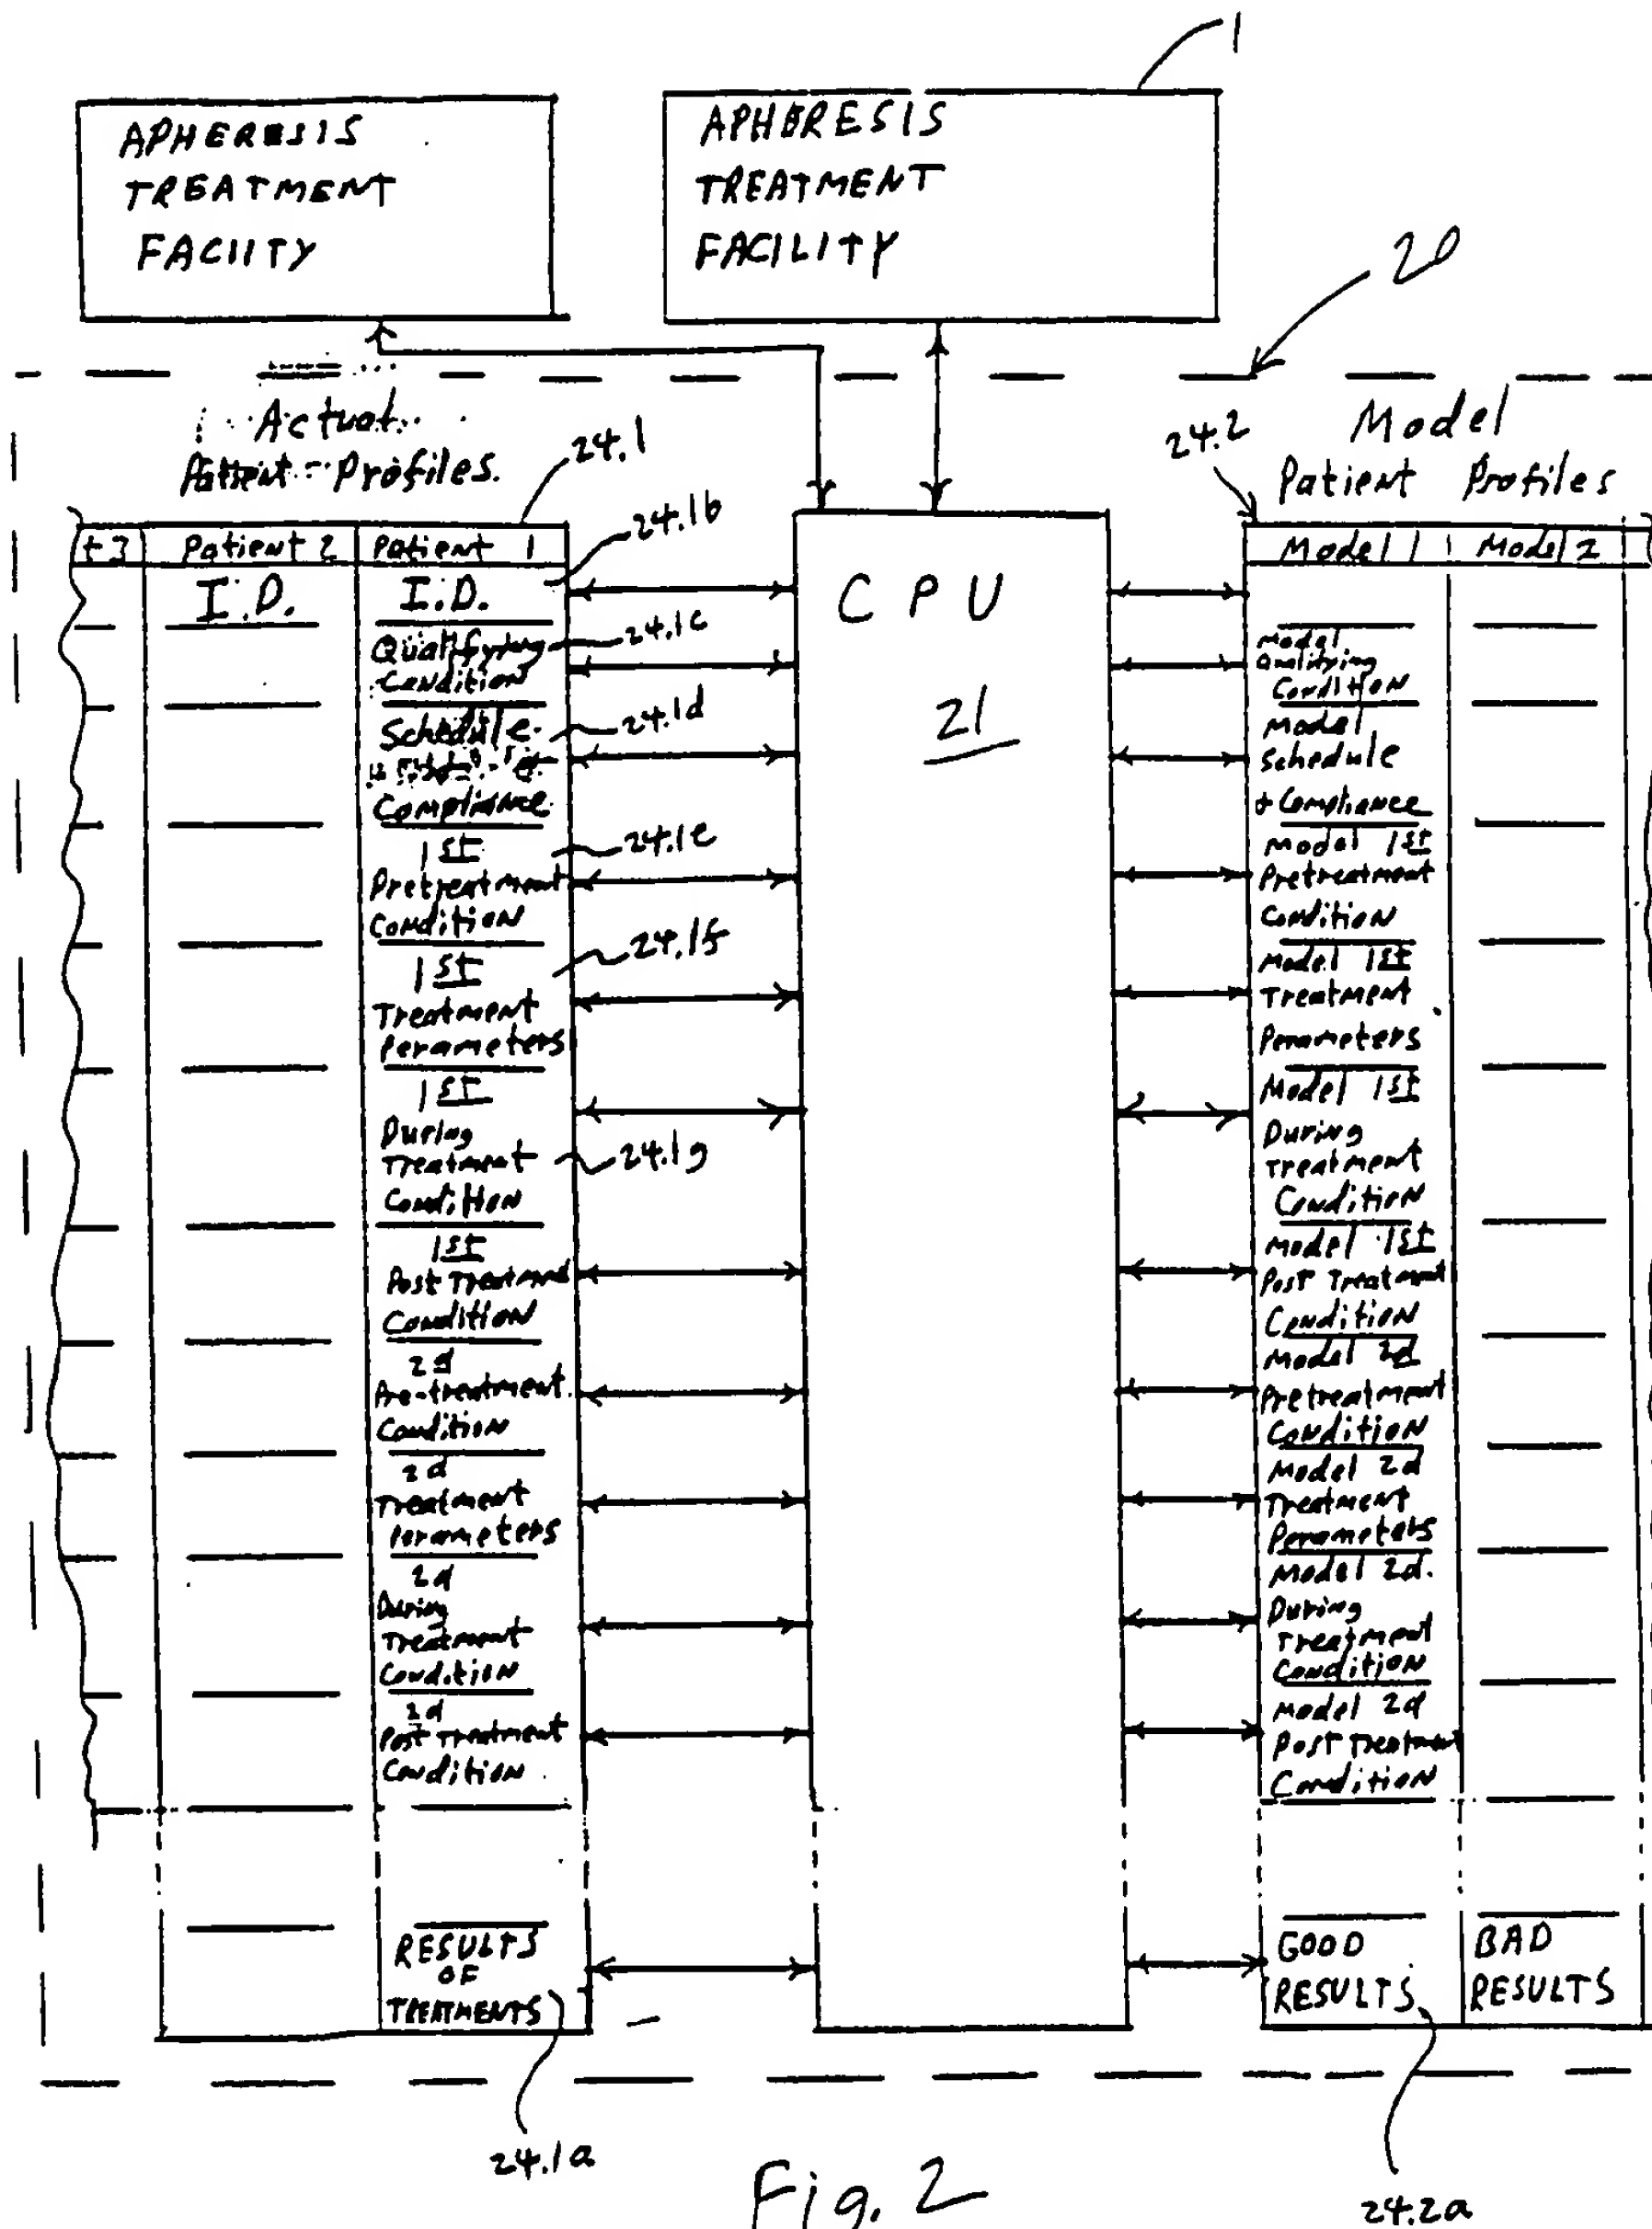 1
APHERESIS
TREATMENT
FACIITY
APHERESIS
TREATMENT
FACILITY
20
Actual
Patient Profiles.
24.1
24.2
Model
Patient Profiles
t3
Patient 2
Patient 1
I.D.
I.D.
24.1b
Qualifying
Condition
24.1c
Schedule
Compliance
24.1d
1st
Pretreatment
Condition
24.1e
1st
Treatment
Perameters
24.1f
1st
During
Treatment
Condition
24.1g
1st
Post Treatment
Condition
2d
Pre-treatment
Condition
2d
Treatment
Perameters
2d
During
Treatment
Condition
2d
Post Treatment
Condition
RESULTS
OF
TREATMENTS
24.1a
CPU
21
Model 1
Model 2
Model
Qualifying
Condition
Model
Schedule
+ Compliance
Model 1st
Pretreatment
Condition
Model 1st
Treatment
Perameters
Model 1st
During
Treatment
Condition
Model 1st
Post Treatment
Condition
Model 2d
Pretreatment
Condition
Model 2d
Treatment
Perameters
Model 2d.
During
Treatment
Condition
Model 2d
Post Treatment
Condition
GOOD
RESULTS
BAD
RESULTS
24.2a
Fig. 2